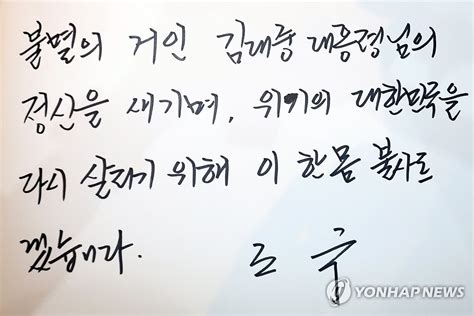 불멸의 거인 김대중 대통령님의
정신을 새기며, 위기의 대한민국을
다시 살리기 위해 이 한몸 불사르
겠습니다. 조 국
YONHAP NEWS